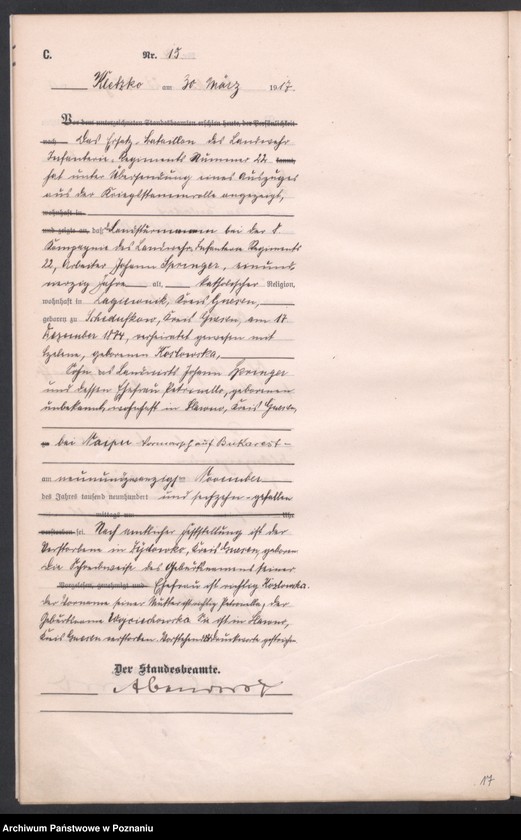 C. Nr. 15
Kletzko am 30 März 1917.
Vor dem unterzeichneten Standesbeamten erschien heute, der Persönlichkeit
nach Das Ersatz-Bataillon des Landwehr
Infanterie-Regiments Nummer 22
hat unter Übersendung eines Auszuges
aus der Kriegsstammrolle angezeigt,
wohnhaft in
und zeigte an, daß Landsturmmann bei der 8
Kompagnie des Landwehr-Infanterie Regiments
22, Arbeiter Johann Springer,
vierzig Jahre alt, katholischer Religion,
wohnhaft in Lagiewnik, Kreis Gnesen,
geboren zu Kreis Gnesen, am
Dezember verheiratet gewesen mit
Helene, geborenen Koslowska,
Sohn des Landwirts Johann Springer
und dessen Ehefrau Petronella, geborenen
unbekannt, wohnhaft in Kreis Gnesen,
bei Vormarsch auf Bukarest
am neunundzwanzigsten November
des Jahres tausend neunhundert und sechzehn gefallen
mittags um Uhr
verstorben sei. Nach amtlicher Feststellung ist der
Verstorbene in Kreis Gnesen geboren
Die Schreibweise des Geburtsnamens seiner
Vorgelesen, genehmigt und Ehefrau ist richtig Kozlowska.
der Vorname seiner Mutter ist richtig Petronella, der
Geburtsname Sie ist in
Kreis Gnesen verstorben. Vorstehend Druckworte gestrichen.
Der Standesbeamte.
17
Archiwum Państwowe w Poznaniu